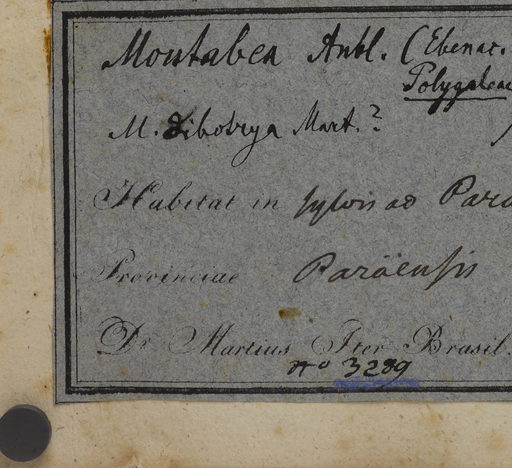 Moutabea Aubl. (Ebenac.
Polygaleac
M. dibotrya Mart.?
Habitat in sylvis ad Para
Provinciae Paraënsis
Dr Martius Iter Brasil.
No 3289